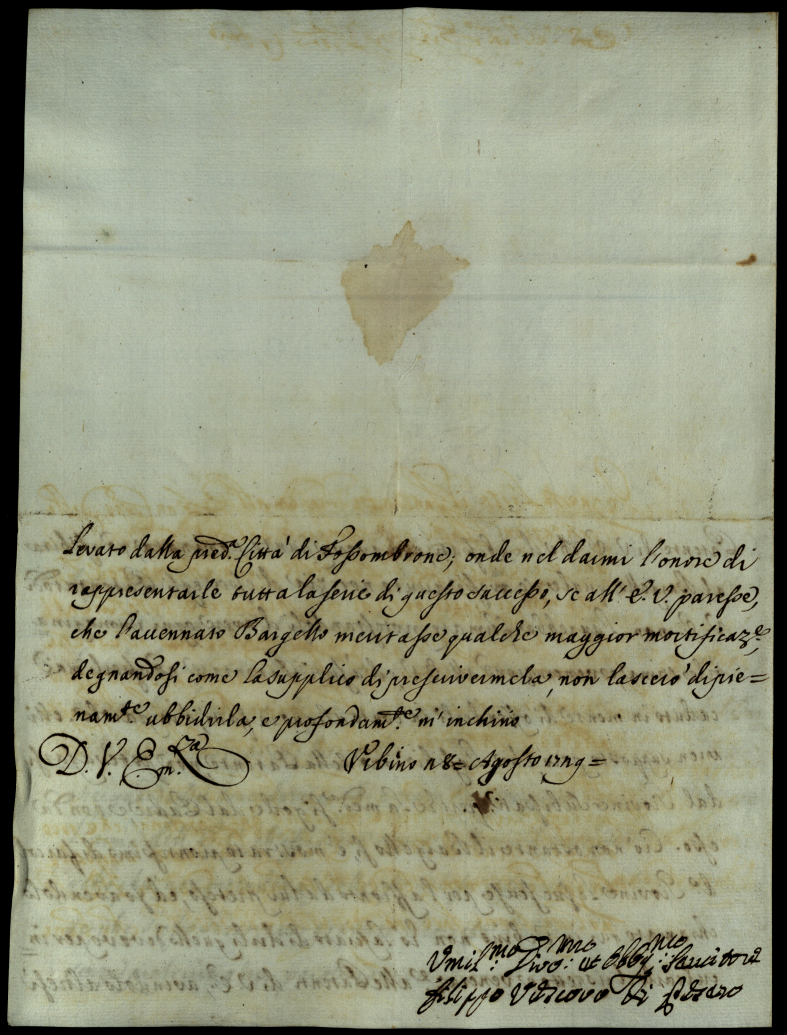 levato dalla pred.ᵃ Città di Fossombrone; onde nel darmi l'onore di
rappresentarle tutta la serie di questo successo, se all' E. V. paresse,
che l'accennato Bargello meritasse qualche maggior mortificaz.ᵉ,
degnandosi come la supplico di prescrivermela, non lascerò di pie=
nam.ᵗᵉ ubbidirla, e profondam.ᵗᵉ m'inchino
D. V. Em.ᶻᵃ Urbino 8 Agosto
Vmil.ᵐᵒ Divo.ᵐᵒ et Obbg.ᵐᵒ Servitore
Filippo Vescovo di Pesaro